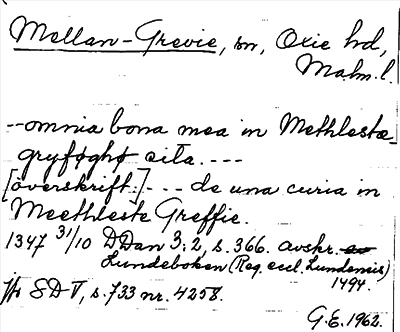 Mellan-Grevie, sn, Oxie hd,
Malm.l.
--omnia bona mea in Methlestæ-
gryføghø sita.---
[överskrift:]--- de una curia in
Meethleste Greffie.
1347 31/10 DDan 3:2, s. 366. avskr.
Lundeboken (Reg. eccl. Lundensis)
1494.
SDV, s.733 nr. 4258.
G.E. 1962.